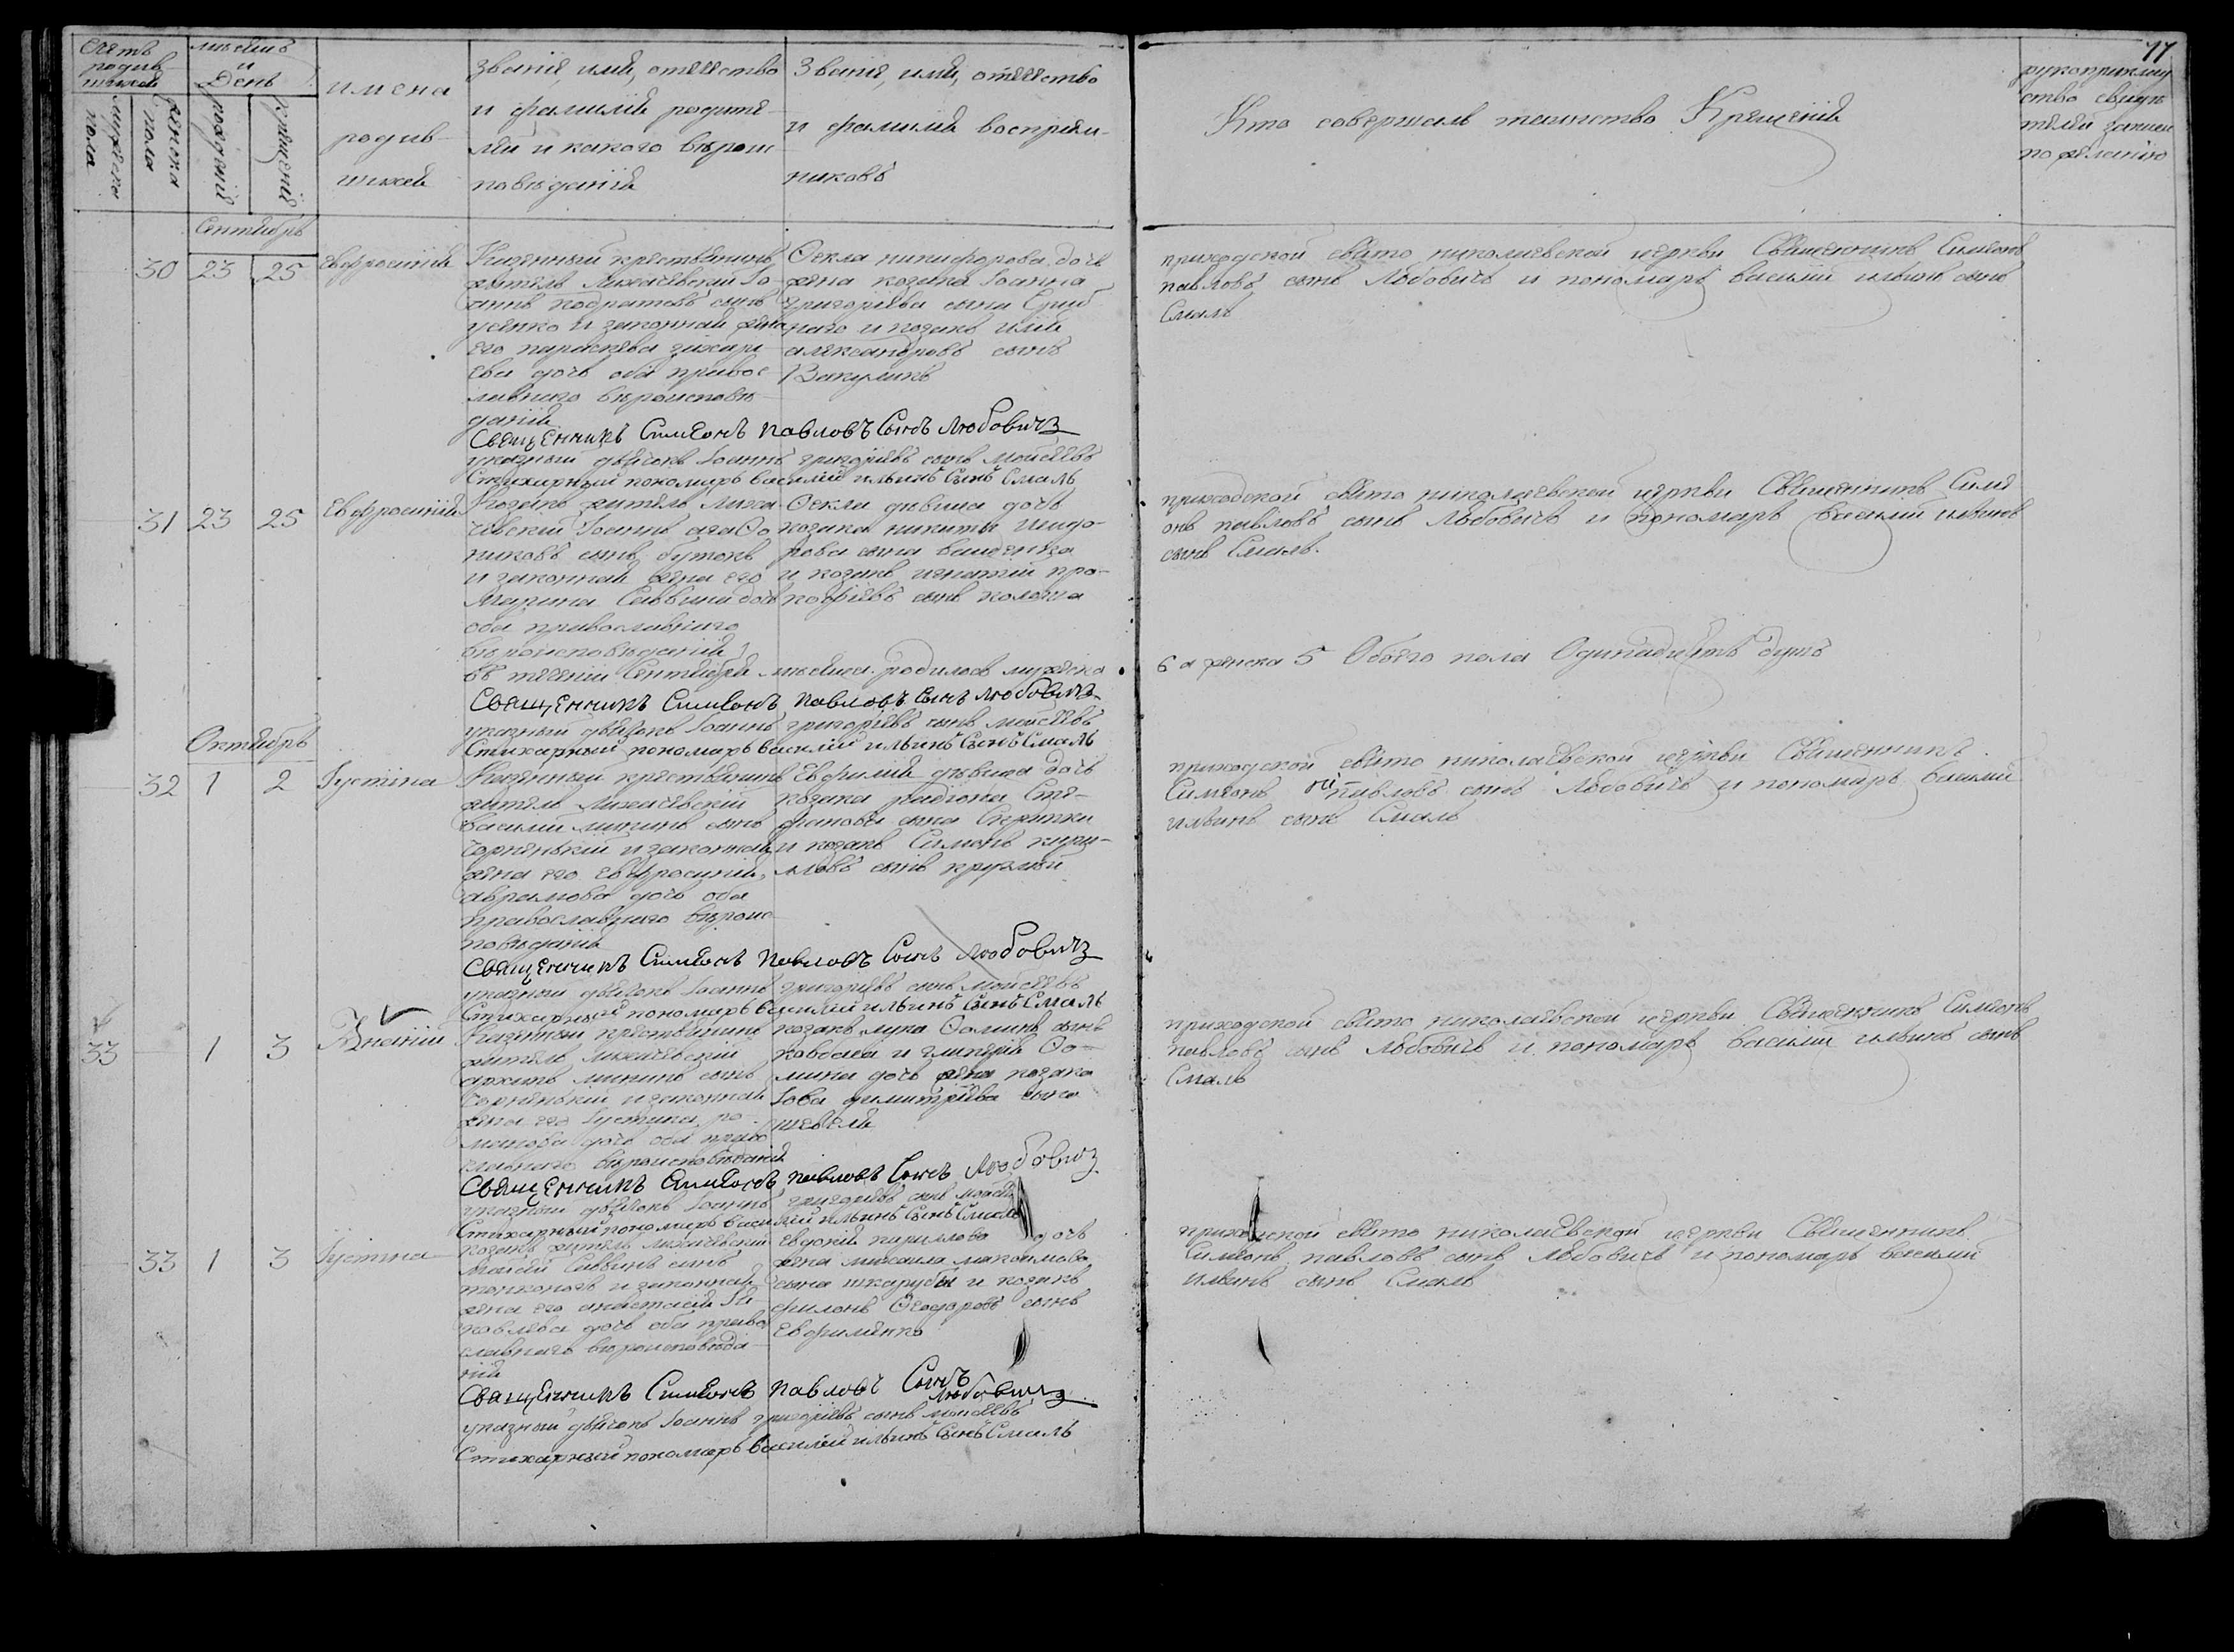 Счетъ родив-шихся
мѣсяцъ и День
имена родив-шихся
Званіе, имя, отечество и фамилія родите-лей и какого вѣроис-повѣданія
Званіе, имя, отечество и фамилія воспріем-никовъ
Кто совершалъ таинство Крещенія
рукоприклад ство свидѣ телей записи по желанію
17
мужеска пола
женска пола
рожденія
крещенія
Сентябрь
30 23 25 Евфросинія
Казенный крестьянинъ
житель Лихачевский Іо-
аннъ кодратовъ сынъ
усенко и законная жена
его параскева захарі-
ева дочь оба правос-
лавнаго вѣроисповѣ-
данія
Фекла никифорова дочь
жена козака Іоанна
григоріева сына
и козакъ илія
александровъ сынъ
Вакулинъ
приходской свято николаевской церкви Священникъ Симеонъ
павловъ сынъ Любовичъ и пономарь василий ильинъ сынъ
Смаль
Священникъ Симеонъ павловъ Сынъ Любовичъ
указный дьячокъ Іоаннъ григоріевъ сынъ Моисеевъ
Стихарный пономарь василій ильинъ Сынъ Смаль
31 23 25 Евфросинія
Козакъ житель Лиха-
чевский Іоаннъ агафо-
никовъ сынъ бутокъ
и законная жена его
Марина Саввина дочь
оба православнаго
вѣроисповѣданія
Фекла дѣвица дочь
козака никиты исидо-
рова сына
и козакъ игнатій про-
кофіевъ сынъ
приходской свято николаевской церкви Священникъ Симе-
онъ павловъ сынъ Любовичъ и пономарь василий ильинъ
сынъ Смаль.
въ теченіи Сентября мѣсяца родилось мужеска
6 а женска 5 Обоего пола Одинадцать душъ
Священникъ Симеонъ павловъ Сынъ Любовичъ
указный дьячокъ Іоаннъ григоріевъ сынъ моисеевъ
Стихарный пономарь василій ильинъ Сынъ Смаль
Октябрь
32 1 2 Іустина
Казенный крестьянинъ
житель Лихачевский
василий мининъ сынъ
Чорненький и законная
жена его евфросинія
аврамова дочь оба
православнаго вѣроис-
повѣданія
Евфимія дѣвица дочь
козака радіона Сте-
фанова сына
и козакъ Симонъ кири-
ловъ сынъ круглый
приходской свято николаевской церкви Священникъ
Симеонъ павловъ сынъ Любовичъ и пономарь василий
ильинъ сынъ Смаль
Священникъ Симеонъ павловъ Сынъ Любовичъ
указный дьячокъ Іоаннъ григоріевъ сынъ Моисеевъ
Стихарный пономарь василій ильинъ Сынъ Смаль
33 1 3
Казенный крестьянинъ
житель лихачевский
архипъ мининъ сынъ
Чорненький и законная
жена его Іустина ро-
манова дочь оба право
славнаго вѣроисповѣданія
козакъ лука Фоминъ сынъ
ковбаса и гликерія Фо-
мина дочь жена козака
Іова димитріева сына
шевеля
приходской свято николаевской церкви Священникъ Симеонъ
павловъ сынъ Любовичъ и пономарь василий ильинъ сынъ
Смаль
Священникъ Симеонъ павловъ Сынъ Любовичъ
указный дьячокъ Іоаннъ григоріевъ сынъ моисеевъ
Стихарный пономарь василій ильинъ Сынъ Смаль
33 1 3 Іустина
козакъ житель лихачевский
Моисей Саввинъ сынъ
и законная
жена его анастасія Іа-
ковлева дочь оба право
славнаго вѣроисповѣда-
нія
Евдокія кирилова дочь
жена михаила максимова
сына шкаруба и козакъ
филонъ Феодоровъ сынъ
Евфименко
приходской свято николаевской церкви Священникъ
Симеонъ павловъ сынъ Любовичъ и пономарь василий
ильинъ сынъ Смаль
Священникъ Симеонъ павловъ Сынъ Любовичъ
указный дьячокъ Іоаннъ григоріевъ сынъ моисеевъ
Стихарный пономарь василій ильинъ Сынъ Смаль